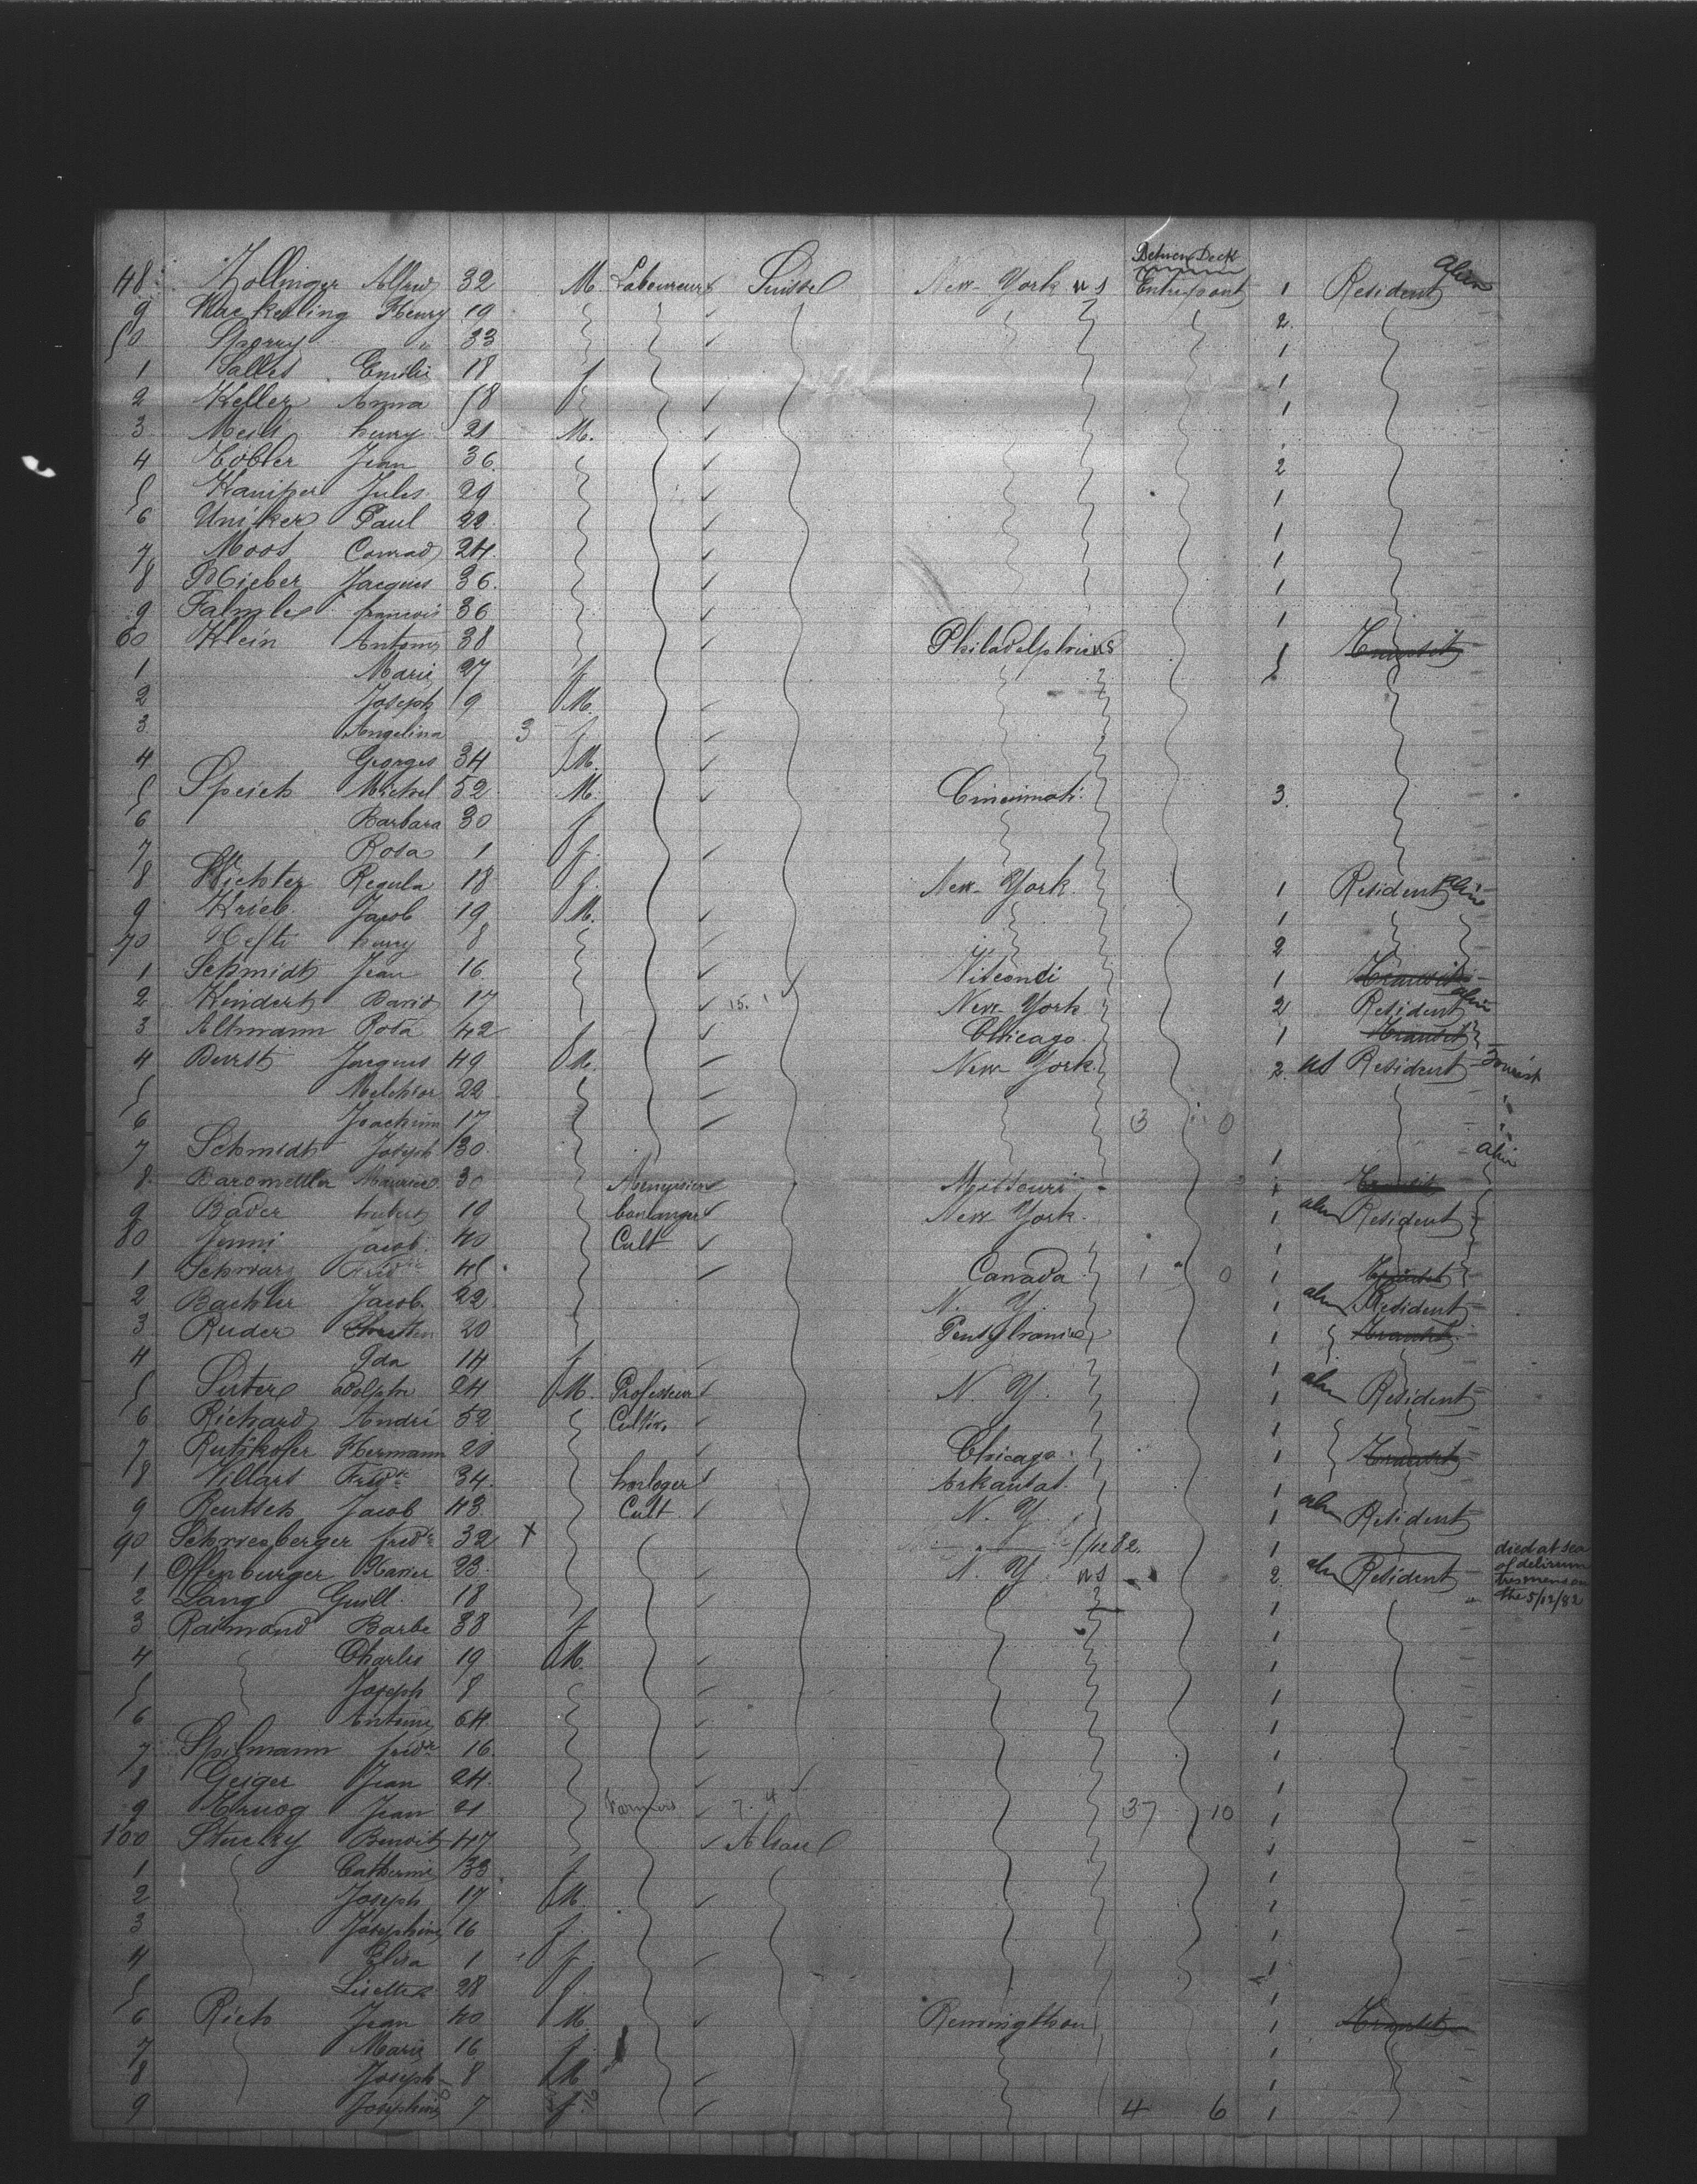 Between Deck
48 Zollinger Alfred 32 M. Laboureur Suisse New-York us Entrepont 1 Resident alien
9 Henry 19 2.
50 Sporry " 33 1
1 Salles Emilie 18 f 1
2 Keller Anna 18 1
3 Meili henry 21 M.
4 Tobler Jean 36 2
5 Jules 29 1
6 Uniker Paul 22 1
7 Moos Conrad 24 1
8 Jacques 36. 1
9 francois 36 1
60 Klein Antony 38 Philadelphie us 1 Transit
1 Marie 27 f 1
2 Joseph 9 M.
3 Angelina 3 f
4 Georges 34 M.
5 Speich Michel 52 M. Cincinnati 3.
6 Barbara 30 f
7 Rosa 1 f.
8 Regula 18 f. New-York 1 Resident alien
9 Krieb Jacob 19 M. 1
70 Hefti henry 8 2
1 Schmidt Jean 16 Visconsi 1 Transit
2 Kindert David 17 15. 1 New-York 2 Resident alien
3 Altmann Rosa 42 f Chicago 1 Transit
4 Durst Jacques 49 M. New-York 2. us Resident Tourist
5 Melchior 22 "
6 Joachim 17 3 0 "
7 Schmidt Joseph 30 1 alien
8. Maurice 30 Missouri 1 Transit
9 Bader hubert 19 boulanger New York. 1 alien Resident
80 Jenni Jacob 40 Cult 1
1 Schwarz 45 Canada 1 0 1 Transit
2 Jacob. 22 N. Y. 1 alien Resident
3 Ruder Christian 20 Pensylvanie 1 Transit
4 Ida 14 f 1
5 Suter adolphe 24 M. Professeur N. Y. 1 alien Resident
6 Richard André 52 Cultiv. 1
7 Hermann 20 Chicago 1 Transit
8 Villars Fredk 34. horloger Arkansas. 1
9 Rentsch Jacob 43 Cult N. Y. 1 alien Resident
90 fredk 32 X 5/12 82. 1 died at sea
1 Offenburger Xavier 23 N. Y. us 2. alien Resident of delirium
tremens on
2 Lang Guill. 18 1 the 5/12/82
3 Raimand Barbe 38 f 1
4 Charles 19 M. 1
5 Joseph 8 1
6 Antoine 64 1
7 Spilmann fredk 16. 1
8 Geiger Jean 24. 1
9 Jean 21 Farmers 7. 4 37 10 1
100 Stucky Benoit 47 Alsace 1
1 Catherine 33 f 1
2 Joseph 17 M. 1
3 Josephine 16 f 1
4 Elisa 1 f. 1
5 Lisette 28 f. 1
6 Rich Jean 40 M. Remingthon 1 Transit
7 Marie 16 f. 1
8 Joseph 8 M 1
9 Josephine 7 f. 4 6 1